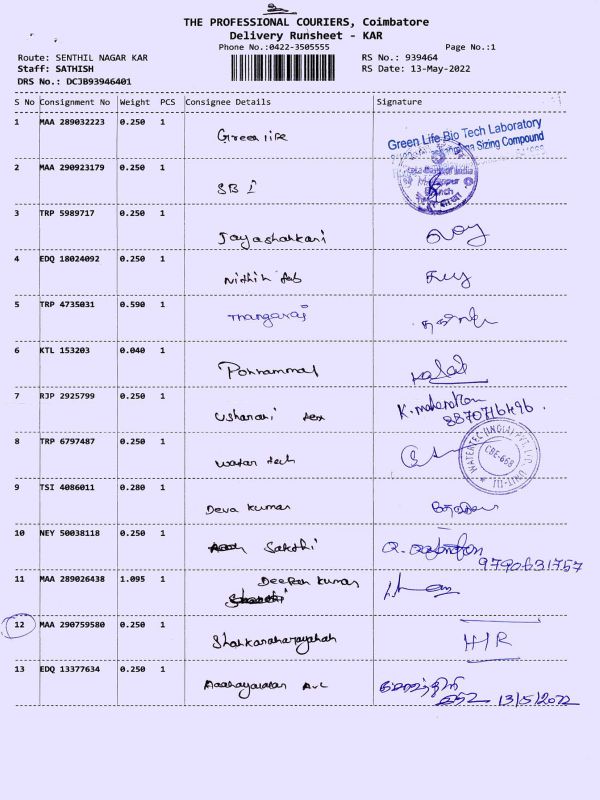 THE PROFESSIONAL COURIERS, Coimbatore
Delivery Runsheet - KAR
Phone No.:0422-3505555
Page No.:1
Route: SENTHIL NAGAR KAR
RS No.: 939464
Staff: SATHISH
RS Date: 13-May-2022
DRS No.: DCJB93946401
S No Consignment No Weight PCS Consignee Details Signature
1 MAA 289032223 0.250 1 Green life
Green Life Bio Tech Laboratory
Sizing Compound
2 MAA 290923179 0.250 1 SBI
3 TRP 5989717 0.250 1 Jayashankari
4 EDQ 18024092 0.250 1 Nithin
5 TRP 4735031 0.590 1 Thangaraj
6 KTL 153203 0.040 1 Ponrammal
7 RJP 2925799 0.250 1 Usharani tex
8870716496
8 TRP 6797487 0.250 1 Watar tech
WATERTEC (INDIA) PVT. LTD UNIT-III
CBE-668
9 TSI 4086011 0.280 1 Deva Kumar
10 NEY 50038118 0.250 1 Sakthi
9790631757
11 MAA 289026438 1.095 1 Deepan Kumar
12 MAA 290759580 0.250 1 Shankaranarayanan
13 EDQ 13377634 0.250 1
13/5/2022